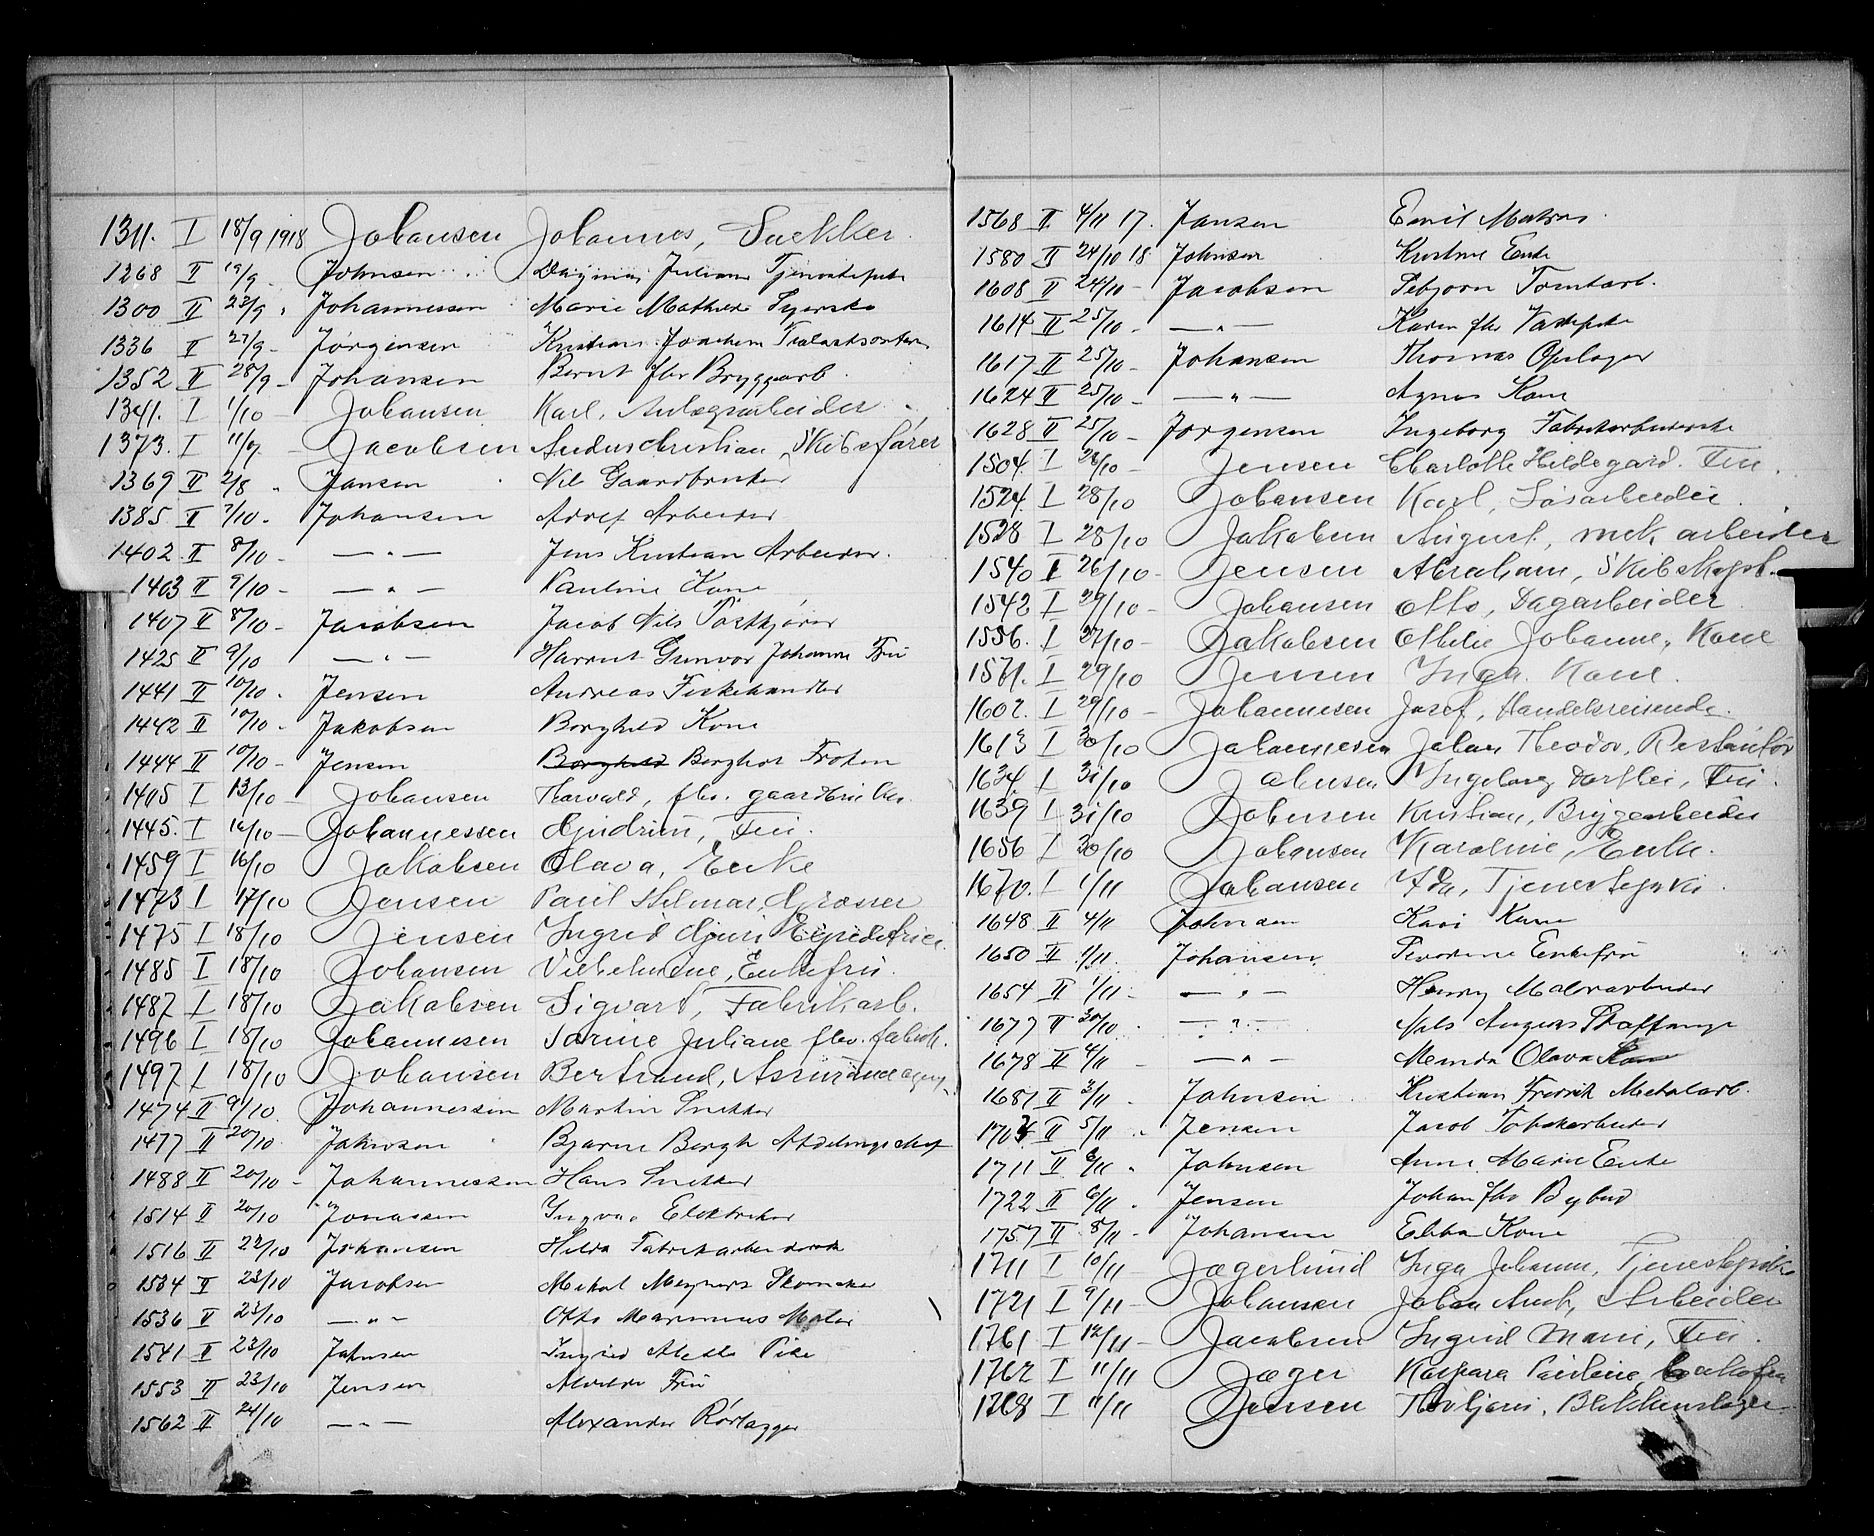 1311. I 18/9 1918 Johansen Johannes, Snekker.
1268 II 19/9 - Johnsen Dagmar Juliane Tjenestepike
1300 II 23/9 " Johannessen Marie Mathilde Syerske
1336 II 27/9 - Jørgensen Kristian Joachim
1352 II 28/9 - Johansen Bernt fhv Bryggearb.
1341. I 1/10 - Johansen Karl, Anlægsarbeider
1373. I 11/9 - Jacobsen Anders Christian, Skibsfører
1369 II 2/8 " Jansen Nils Gaardbruker
1385 II 7/10 - Johansen Adolf Arbeider
1402 II 8/10 - — " — Jens Kristian Arbeider.
1403 II 9/10 - — " — Pauline Kone
1407 II 8/10 - Jacobsen Jacob Nils
1425 II 9/10 — " — Harriet Gunvor Johanne Fru
1441 II 10/10 - Jensen Andreas Fiskehandler
1442 II 10/10 - Jakobsen Borghild Kone
1444 II 10/10 - Jensen Borghild Berghot Frøken
1405 I 13/10 - Johansen Torvald, fhv. gaardbruker.
1445. I 16/10 - Johannessen Gudrun, Fru.
1459 I 16/10 Jakobsen Olava, Enke
1473 I 17/10 Jensen Paul Hilmar, Grosser
1475 I 18/10 Jensen Ingrid Guri, Expeditrice.
1485 I 18/10 Johansen Vilhelmine, Enkefru.
1487 I 18/10 Jakobsen Sigvart, Fabrikarb.
1496 I 18/10 Johannesen Sarine Juliane fhv. fabrik.
1497 I 18/10 Johansen Bertrand, Assuranceagent
1474 II 9/10 Johannessen Martin Snekker
1477 II 20/10 Johnsen Bjarne Bergh Afdelingschef
1488 II 20/10 - Johannessen Hans Snekker
1514 II 20/10 Jonassen Ingvar Elektriker
1516 II 22/10 Johansen Hilda Fabrikarbeiderske
1534 II 23/10 Jacobsen Mikal Skomaker
1536 II 23/10 — " — Otto Marinius Maler
1541 II 23/10 Johnsen Ingrid Aletta Pike
1553 II 23/10 Jensen Alvilde Fru
1562 II 24/10 — " — Alexander Rørlægger
1568 II 4/11 17. Jansen Emil Matros.
1580 II 24/10 18 Johnsen Kristine Enke
1608 II 24/10 - Jacobsen Tomtearb.
1614 II 25/10 - — " — Karen fhv
1617 II 25/10 - Johansen Thomas Oplager
1624 II 25/10 - — " — Agnes Kone
1628 II 25/10 - Jørgensen Ingeborg Fabrikarbeiderske
1504. I 28/10 - Jensen Charlotte Hildegard. Fru.
1524. I 28/10 Johansen Karl, Løsarbeider.
1528 I 28/10 Jakobsen August, mek arbeider
1540 I 26/10 - Jensen Abraham, Skibskapt.
1542 I 29/10 - Johansen Otto, Dagarbeider
1556. I 27/10 - Jakobsen Othilie Johanne, Kone
1571. I 29/10 Jensen Inga. Kone.
1602. I 29/10 - Johannesen Josef, Handelsreisende.
1613 I 30/10 Johannesen Johan Theodor,
1634 I 31/10 Johnsen Ingeborg Dorthei, Fru.
1639 I 31/10 Johnsen Kristian, Bryggearbeider
1656 I 30/10 Johansen Karoline, Enke.
1670. I 1/11 Johansen Ada, Tjenestepike.
1648 II 4/11 Johnsen Kari Kone
1650 II 1/11 Johansen Enkefru
1654 II 1/11 - — " — Henry Malerarbeider
1677 II 30/10 . — " — Nils August
1678 II 4/11 - — " — Olava Kone
1681 II 3/11 . Johnsen Kristian Fredrik Metalarb.
1704 II 5/11 " Jensen Jacob Tobakarbeider
1711 II 6/11 . Johnsen Anne Marie Enke
1722 II 6/11 . Jensen Johan fhv Bybud
1757 II 8/11 - Johansen Ebba Kone
1711 I 10/11 Jægerlund Inga Johanne, Tjenestepike
1721 I 9/11 - Johansen Johan Arbeider
1761 I 12/11 - Jacobsen Ingrid Marie, Fru.
1762 I 11/11 Jæger Kaspara Pauline,
1768 I 11/11 Jensen Blikkenslager